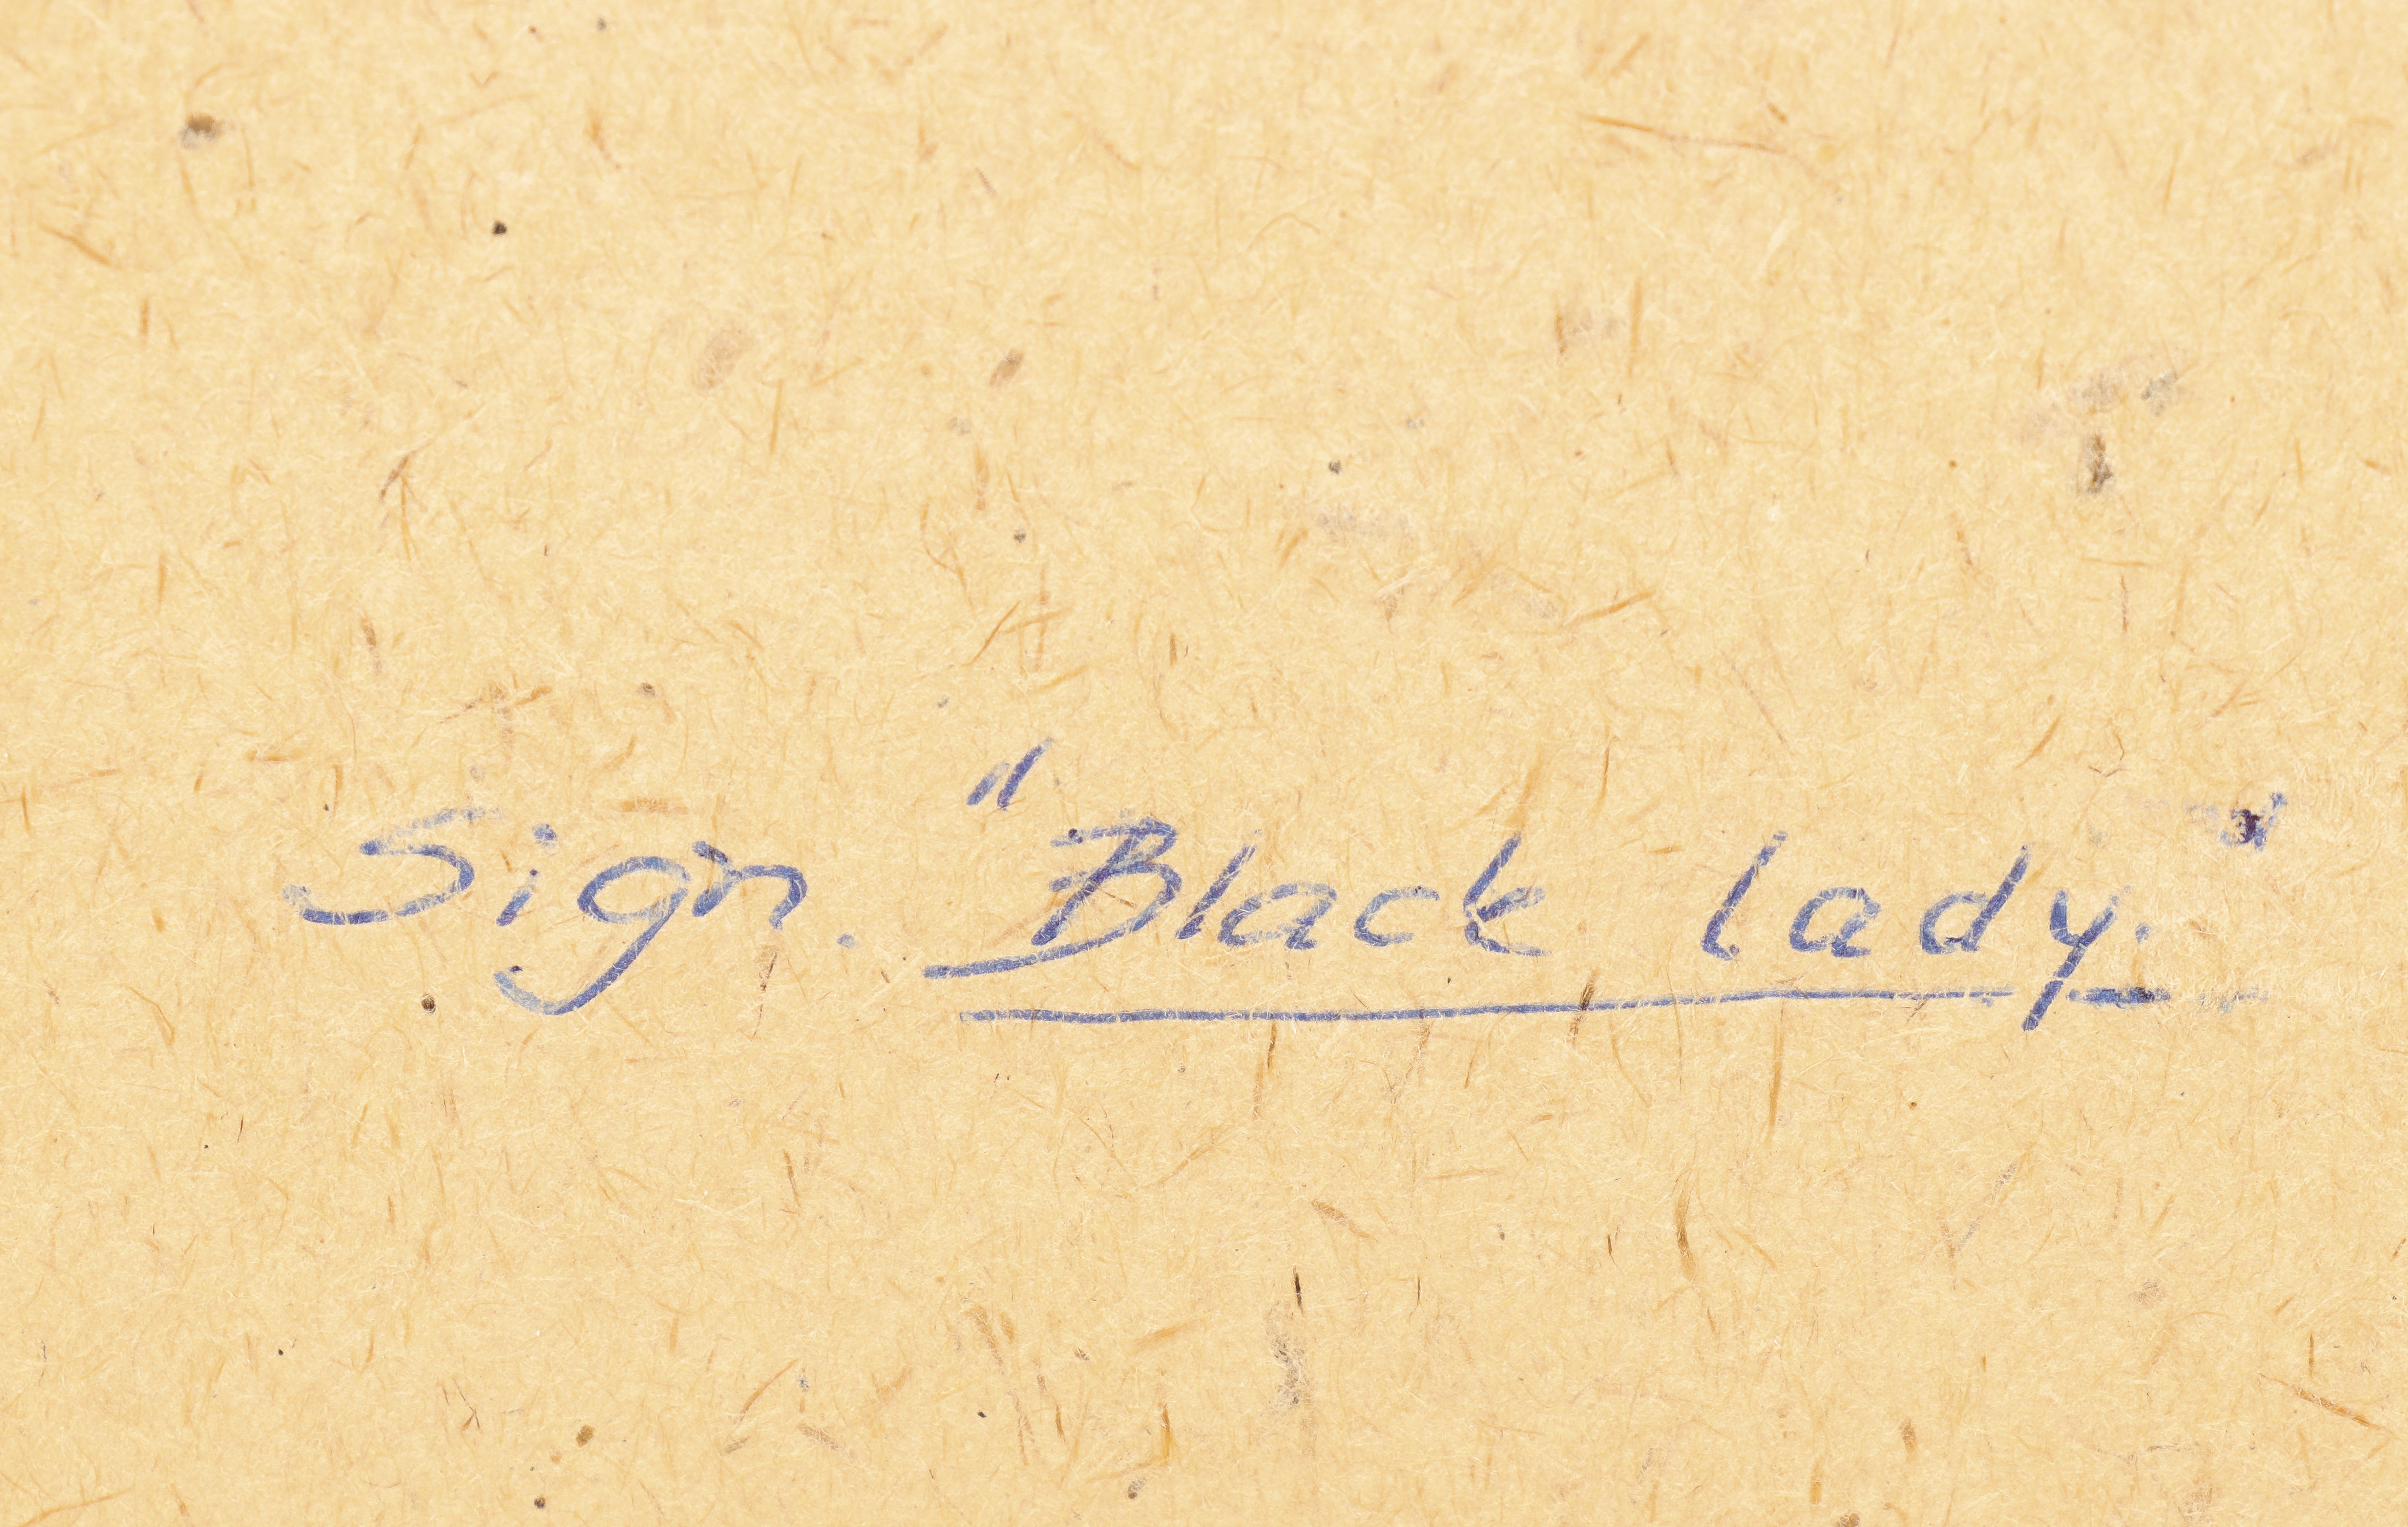 Sign. "Black lady."